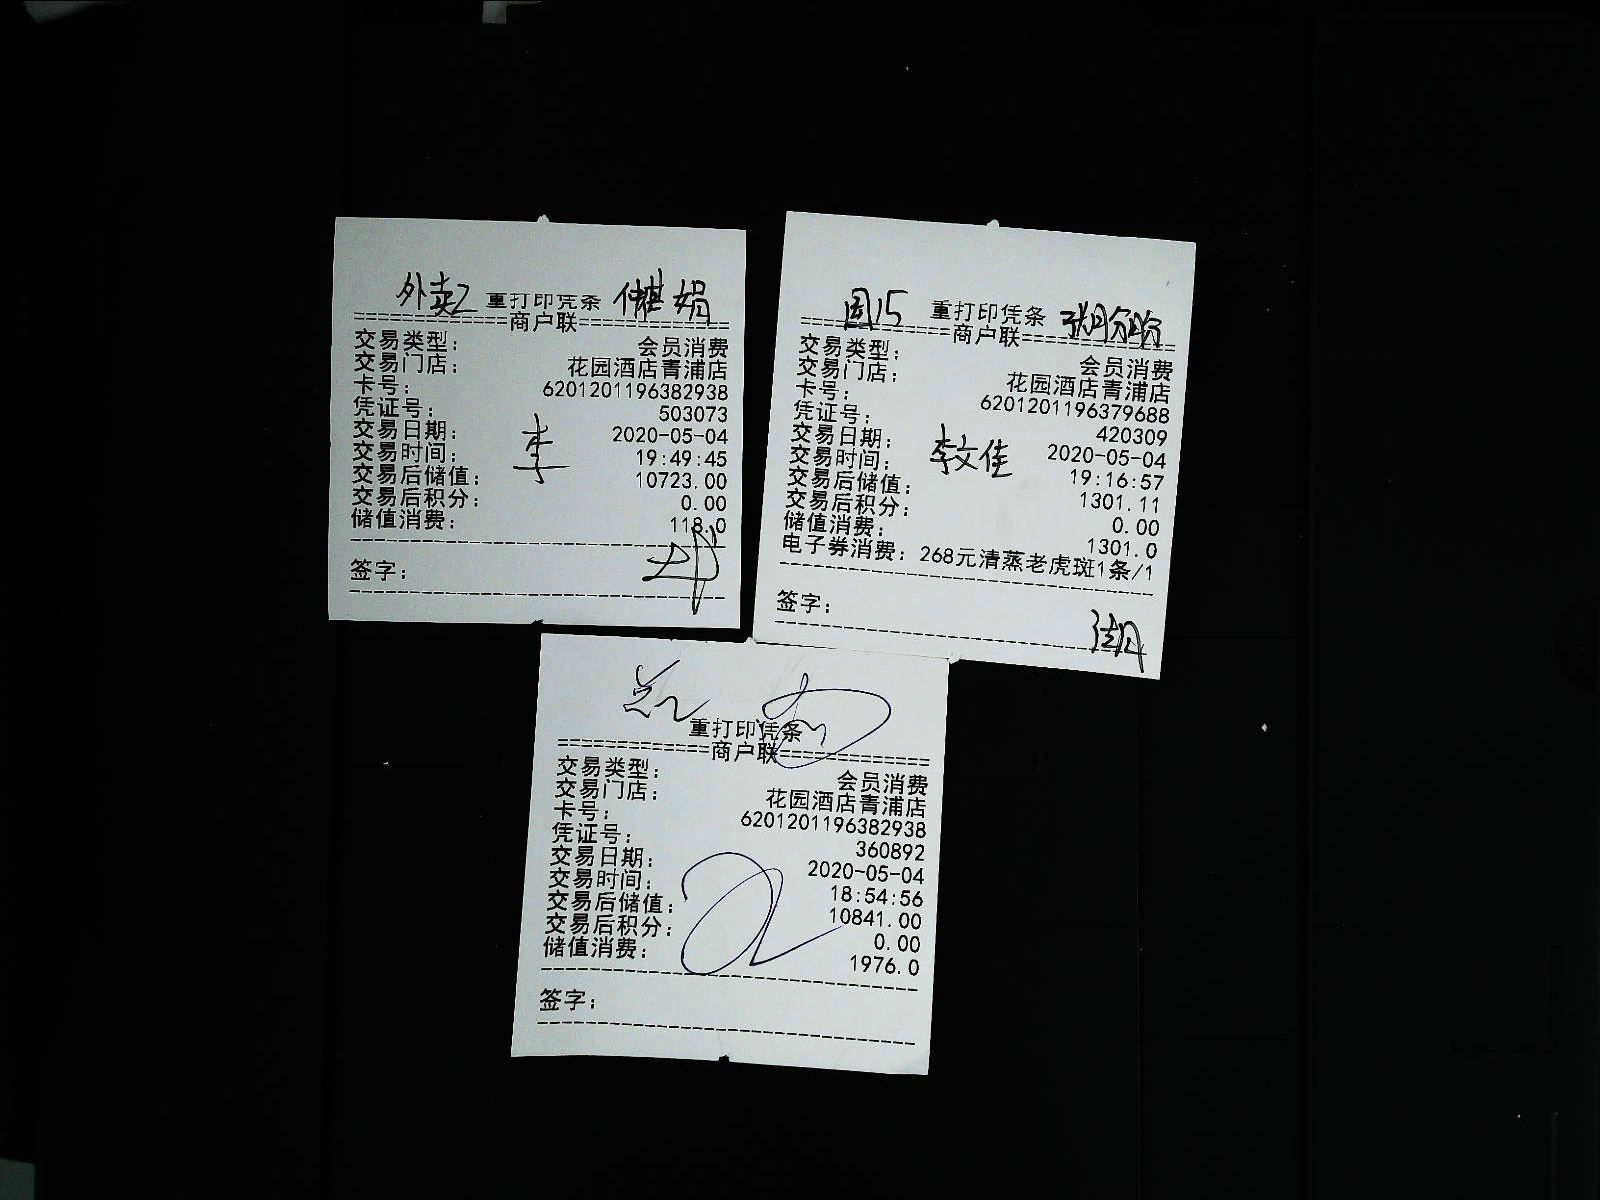 外卖2 重打印凭条
============商户联============
交易类型: 会员消费
交易门店: 花园酒店青浦店
卡号: 6201201196382938
凭证号: 503073
交易日期: 2020-05-04
交易时间: 19:49:45
交易后储值: 10723.00
交易后积分: 0.00
储值消费: 118.0
李
签字:
周15 重打印凭条
============商户联============
交易类型: 会员消费
交易门店: 花园酒店青浦店
卡号: 6201201196379688
凭证号: 420309
交易日期: 2020-05-04
交易时间: 19:16:57
交易后储值: 1301.11
交易后积分: 0.00
储值消费: 1301.0
李文佳
电子券消费: 268元清蒸老虎斑1条/1
签字:
重打印凭条
============商户联============
交易类型: 会员消费
交易门店: 花园酒店青浦店
卡号: 6201201196382938
凭证号: 360892
交易日期: 2020-05-04
交易时间: 18:54:56
交易后储值: 10841.00
交易后积分: 0.00
储值消费: 1976.0
签字: